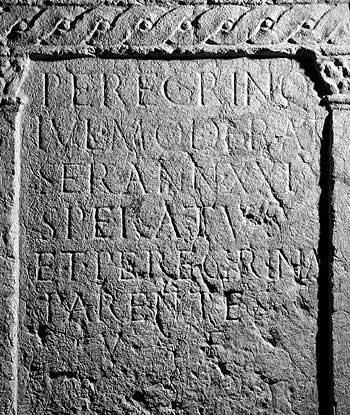 PEREGRINO
IVL MODERAT
SER ANN XXI
SPERATVS
ET PEREGRINA
PARENTE